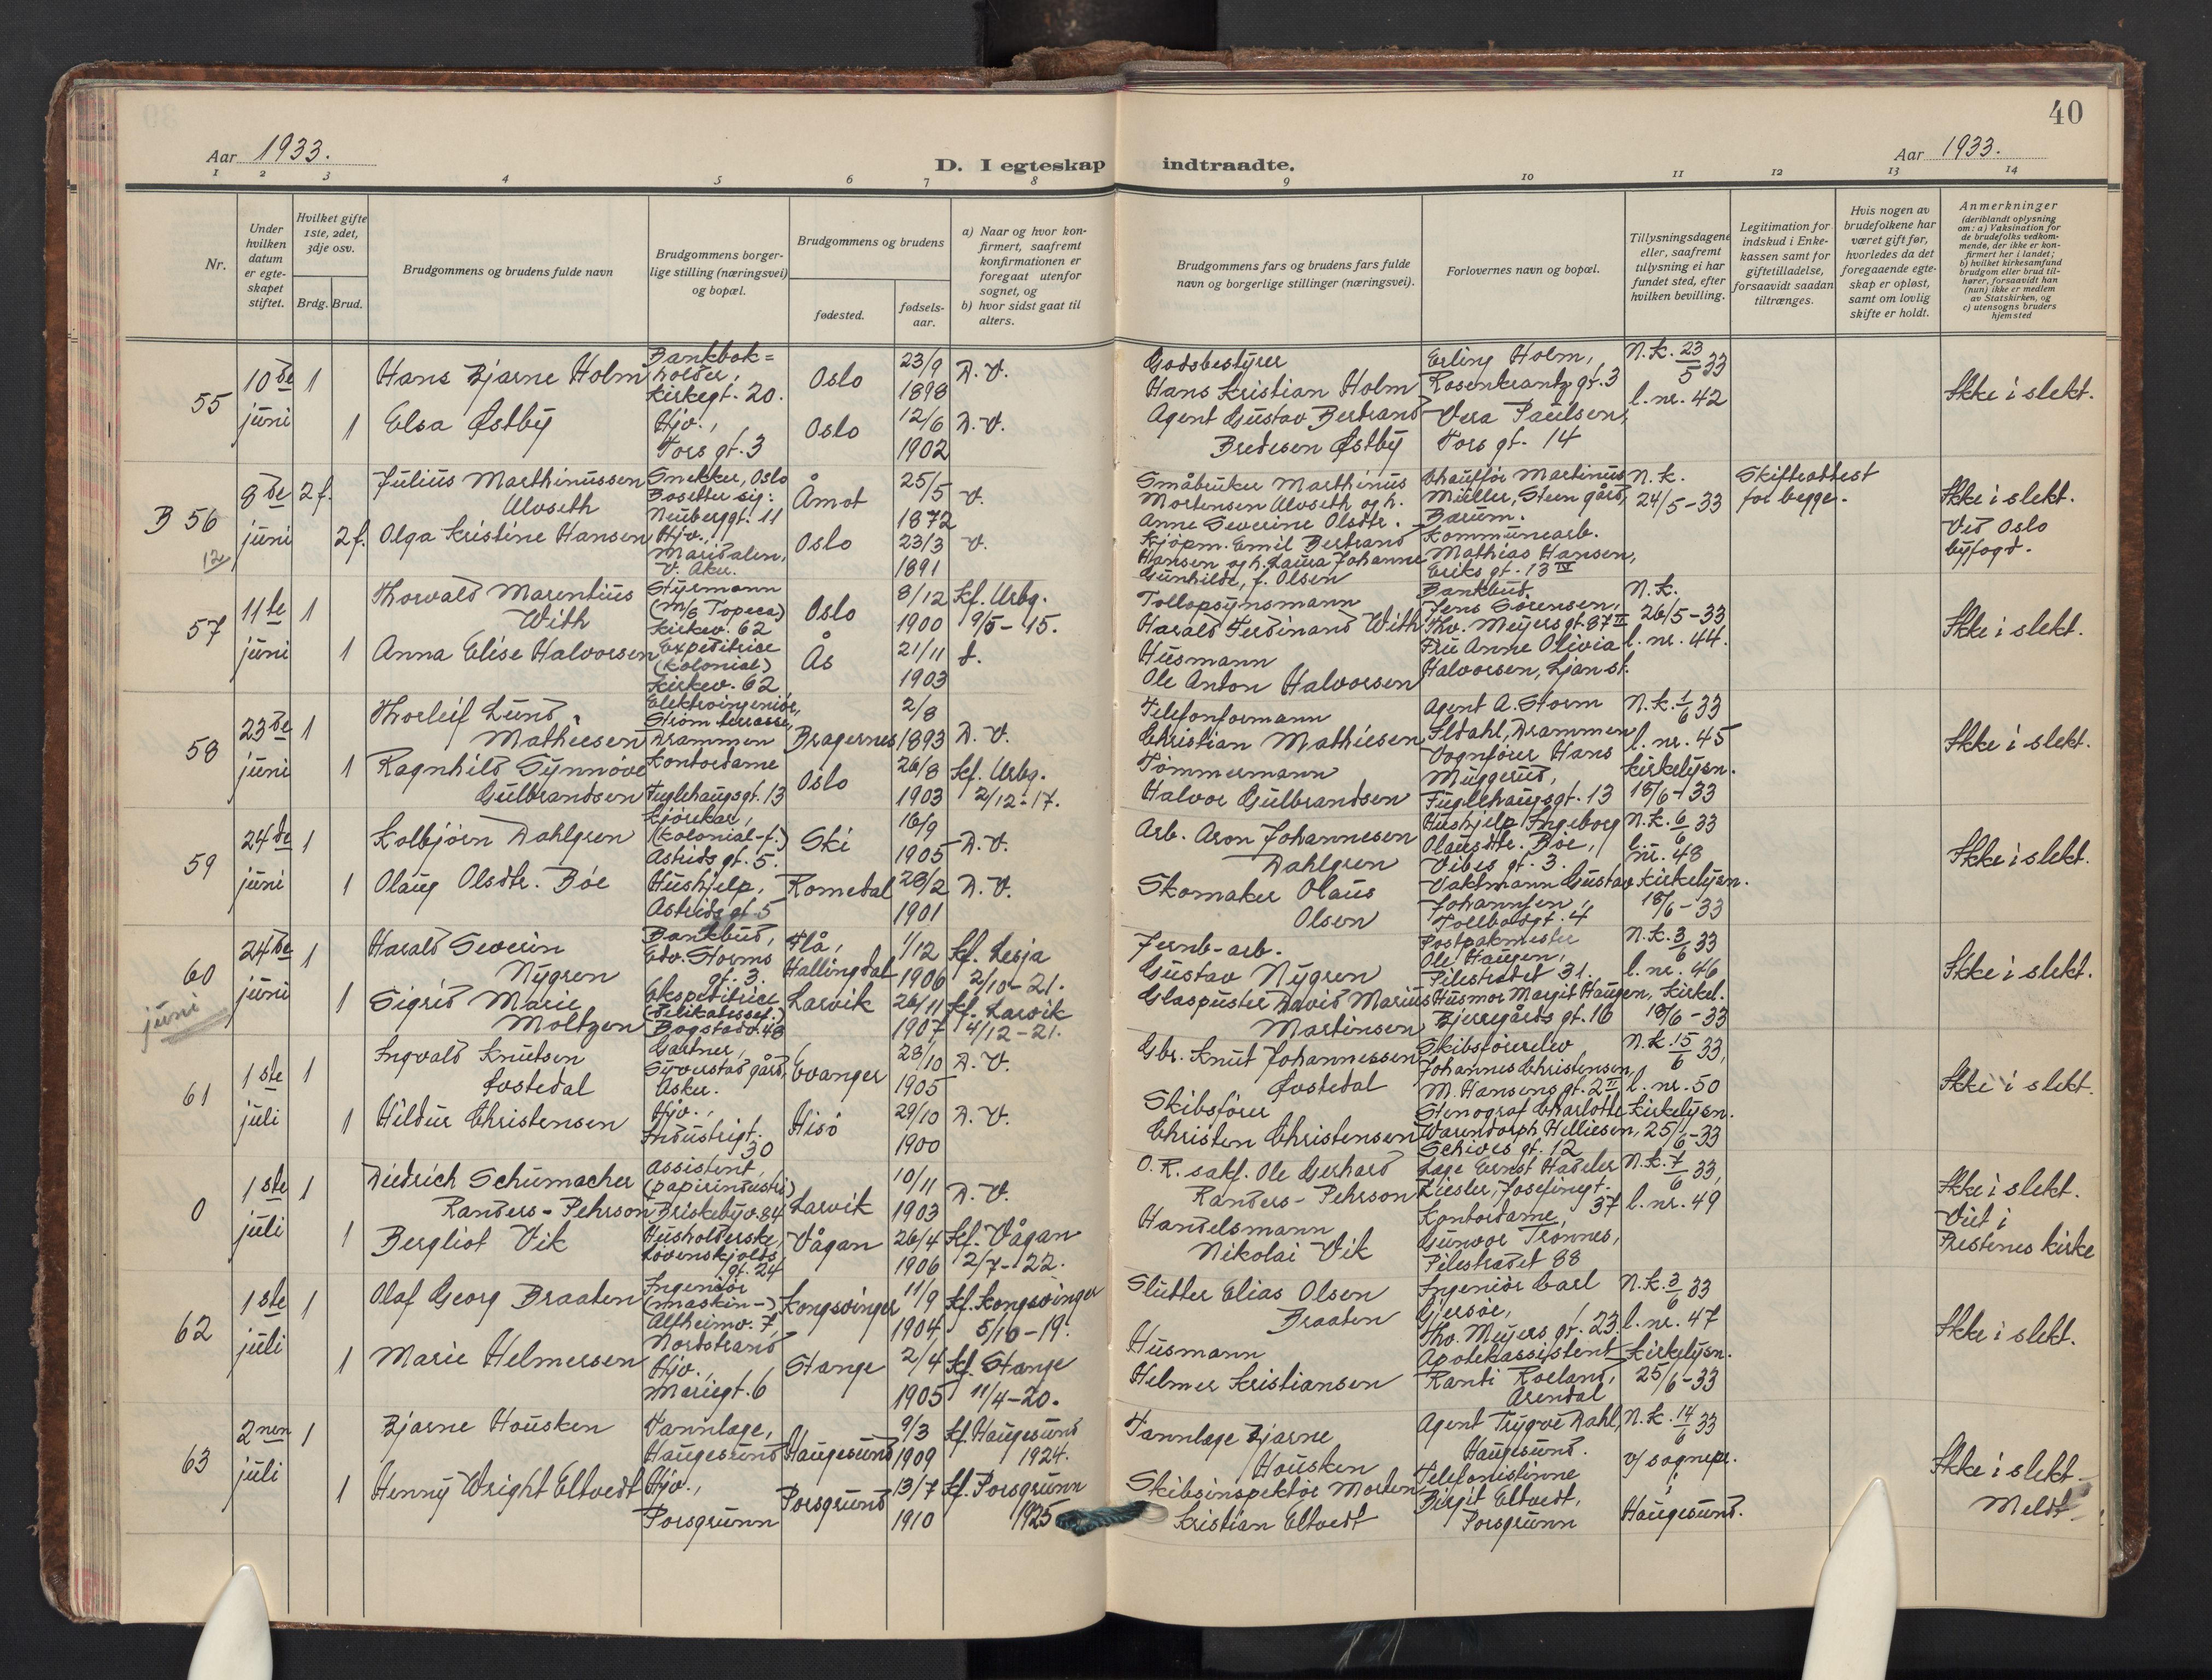 40
Aar 1933.
Aar 1933.
D. I egteskap indtraadte.
1 2 3 4 5 6 7 8 9 10 11 12 13 14
Nr.
Under hvilken datum er egteskapet stiftet.
Hvilket gifte 1ste, 2det, 3dje osv.
Brdg. Brud.
Brudgommens og brudens fulde navn
Brudgommens borgerlige stilling (næringsvei) og bopæl.
Brudgommens og brudens
fødested.
fødselsaar.
a) Naar og hvor konfirmert, saafremt konfirmationen er foregaat utenfor sognet, og
b) hvor sidst gaat til alters.
Brudgommens fars og brudens fars fulde navn og borgerlige stillinger (næringsvei).
Forlovernes navn og bopæl.
Tillysningsdagene eller, saafremt tillysning ei har fundet sted, efter hvilken bevilling.
Legitimation for indskud i Enkekassen samt for giftetilladelse, forsaavidt saadan tiltrænges.
Hvis nogen av brudefolkene har været gift før, hvorledes da det foregaaende egteskap er opløst, samt om lovlig skifte er holdt.
Anmerkninger
(deriblandt oplysning om: a) Vaksination for de brudefolks vedkommende, der ikke er konfirmert her i landet; b) hvilket kirkesamfund brudgom eller brud tilhører, forsaavidt han (hun) ikke er medlem av Statskirken, og c) utensogns bruders hjemsted
55 10de juni 1 Hans Bjarne Holm Bankbokholder, Kirkegt. 20. Oslo 23/9 1898 D. V. Godsbestyrer Hans Kristian Holm Erling Holm, Rosenkrantzgt. 3 N.k. 23/5 33 l. nr. 42 Ikke i slekt.
1 Elsa Østby Hjv., Tors gt. 3 Oslo 12/6 1902 D. V. Agent Gustav Bertrand Bredesen Østby Vera Paulsen, Tors gt. 14
B 56 8de juni 2 f. Julius Marthinussen Ulvseth Snekker, Oslo Bosetter sig: Neuberggt. 11 Åmot 25/5 1872 V. Småbruker Marthinus Mortensen Ulvseth og h. Anne Severine Olsdtr. Chauffør Martinus Müller, Steen gård, Bærum. N.k. 24/5-33 Skifteattest for begge. Ikke i slekt. Ved Oslo byfogd.
12 2 f. Olga Kristine Hansen Hjv., Maridalen, V. Aker. Oslo 23/3 1891 V. Kjøpm. Emil Bertrand Hansen og h. Laura Johanne Gunhilde, f. Olsen Kommunearb. Mathias Hansen, Eriks gt. 13 IV
57 11te juni 1 Thorvald Marentius With Styrmann (m/s Topeca) Kirkev. 62 Oslo 8/12 1900 Kf. Urbg. 9/5-15. Tollopsynsmann Harald Ferdinand With Bankbud. Jens Sørensen, Thv. Meyers gt. 87 II N.k. 26/5-33 l. nr. 44. Ikke i slekt.
1 Anna Elise Halvorsen Expeditrice (kolonial) Kirkev. 62 Ås 21/11 1903 d. Husmann Ole Anton Halvorsen Fru Anne Olivia Halvorsen, Ljan st.
58 23de juni 1 Thorleif Lund Mathiesen Elektroingeniør, Strøm terrasse, Drammen Bragernes 2/8 1893 D. V. Telefonformann Christian Mathiesen Agent A. Storm Sldahl, Drammen N.k. 1/6 33 l. nr. 45 Kirkelysn. 18/6-33 Ikke i slekt.
1 Ragnhild Synnøve Gulbrandsen Kontordame Fuglehaugsgt. 13 Oslo 26/8 1903 Kf. Urbg. 2/12-17. Tømmermann Halvor Gulbrandsen Vognfører Hans Muggerud, Fuglehaugsgt. 13
59 24de juni 1 Kolbjørn Dahlgren Sjåfør, (kolonial-f.) Astrids gt. 5. Ski 16/9 1905 D. V. Arb. Aron Johannesen Dahlgren Hushjelp Ingeborg Olausdtr. Bøe, Vibes gt. 3. N.k. 6/6 33 l. nr. 48 Kirkelysn. 18/6-33 Ikke i slekt.
1 Olaug Olsdtr. Bøe Hushjelp, Astrids gt. 5 Romedal 28/2 1901 D. V. Skomaker Olaus Olsen Vaktmann Gustav Johannsen, Tollbodgt. 4
60 24de juni 1 Harald Severin Nygren Bankbud, Edv. Storms gt. 3. Flå, Hallingdal 1/12 1906 Kf. Lesja 2/10-21. Jernb-arb. Gustav Nygren Postpakmester Ole Haugen, Pilestredet 31. N.k. 3/6 33 l. nr. 46 Kirkel. 18/6-33 Ikke i slekt.
juni 1 Sigrid Marie Moltzen Ekspeditrice (delikatessef.) Bogstadv. 48 Larvik 26/11 1907 Kf. Larvik 4/12-21. Glaspuster David Marius Martinsen Husmor Margit Haugen, Bjerregårds gt. 16
61 1ste juli 1 Ingvald Knutsen Fostedal Gartner, Syverstad gård, Asker. Evanger 28/10 1905 D. V. Gbr. Knut Johannessen Fostedal Skibsførerelev Johannes Christensen, M. Hansens gt. 2 II N.k. 15/6 33, l. nr. 50 Kirkelysn. 25/6-33 Ikke i slekt.
1 Hildur Christensen Hjv., Industrigt. 30 Hisø 29/10 1900 D. V. Skibsfører Christen Christensen Stenograf Charlotte Warendorph Helliesen, Schives gt. 12
0 1ste juli 1 Diedrich Schumacher Randers-Pehrson Assistent, (papirindustri) Briskebyv. 84 Larvik 10/11 1903 D. V. O. R. sakf. Ole Gerhard Randers-Pehrson Læge Ernst Hadeler Ziesler, Josefinegt. 37 N.k. 7/6 33, l. nr. 49 Ikke i slekt. Viet i Prestenes kirke
1 Bergliot Vik Husholderske, Løvenskjolds gt. 24 Vågan 26/4 1906 Kf. Vågan 2/7-22. Handelsmann Nikolai Vik Kontordame, Gunvor Trønnes, Pilestrædet 88
62 1ste juli 1 Olaf Georg Braaten Ingeniør (maskin-) Alfheimv. 7, Nordstrand Kongsvinger 11/9 1904 Kf. Kongsvinger 5/10-19. Slutter Elias Olsen Braaten Ingeniør Carl Gjersøe, Thv. Meyers gt. 23. N.k. 3/6 33 l. nr. 47 Kirkelysn. 25/6-33 Ikke i slekt.
1 Marie Helmersen Hjv., Mariegt. 6 Stange 2/4 1905 Kf. Stange 11/4-20. Husmann Helmer Kristiansen Apotekassistent Randi Roeland, Arendal
63 2nen juli 1 Bjarne Housken Tannlæge, Haugesund Haugesund 9/3 1909 Kf. Haugesund 1924. Tannlæge Bjarne Housken Agent Trygve Dahl, Haugesund. N.k. 14/6 33 v/ sognepr. i Haugesund. Ikke i slekt. Meldt
1 Henny Wright Eltvedt Hjv., Porsgrunn Porsgrund 13/7 1910 Kf. Porsgrunn 1925 Skibsinspektør Morten Kristian Eltvedt Telefonistinne Birgit Eltvedt, Porsgrunn